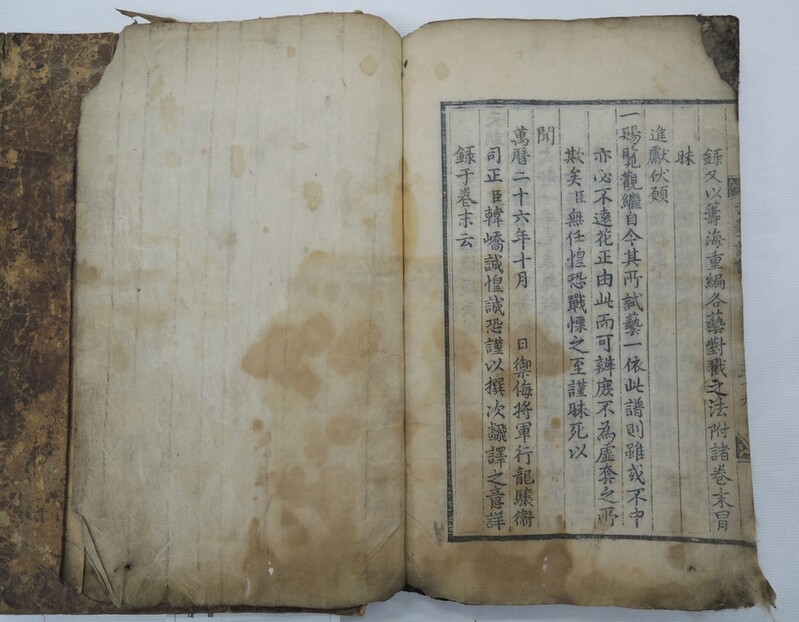 錄又以籌海重編各藝對戰之法附諸卷末冒
昧
進獻伏願
一賜覽觀繼自今其所試藝一依此譜則雖或不中
亦必不遠花正由此而可辨庶不為虛套之所
欺矣臣無任惶恐戰慄之至謹昧死以
聞
萬曆二十六年十月 日禦侮將軍行龍驤衛
司正臣韓嶠誠惶誠恐謹以撰次飜譯之意詳
錄于卷末云